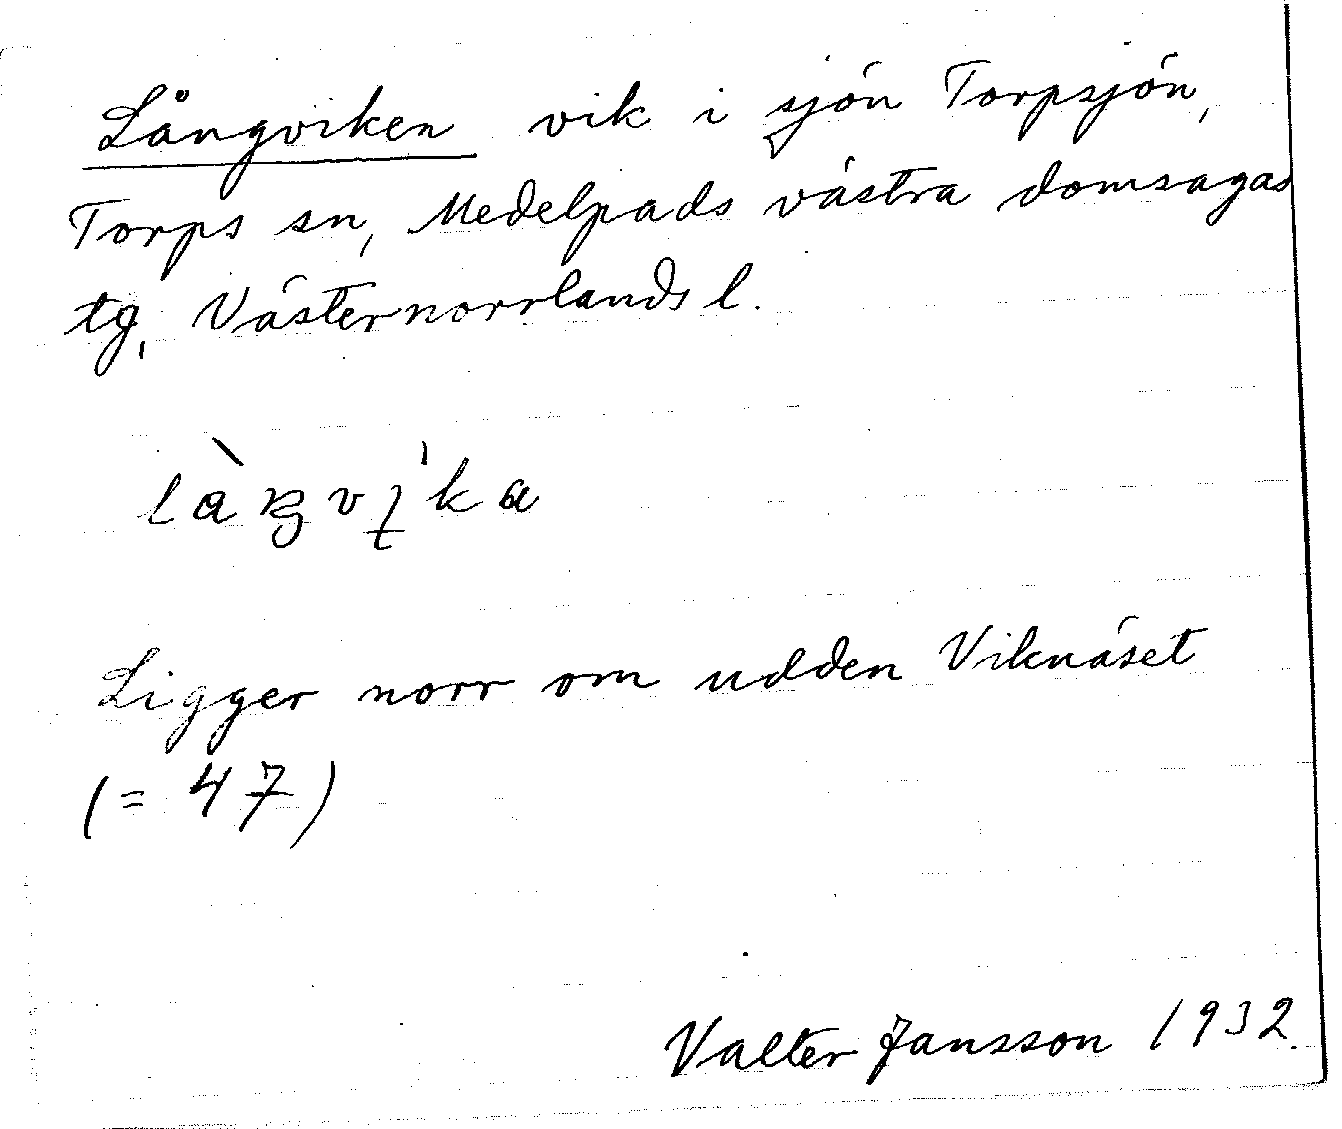 Långviken vik i sjön Torpsjön,
Torps sn, Medelpads västra domsagas
tg, Västernorrlands l.
Ligger norr om udden Viknäset
(= 47)
Valter Jansson 1932.